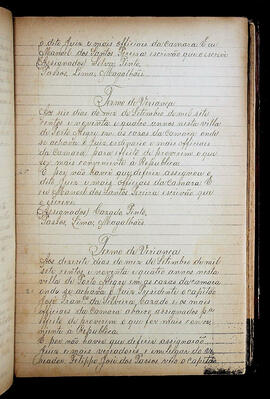 o dito Juiz e mais officiais da Camara E eu
Manoel dos Santos Pereira escrivão que o escrevi
(Assignados) Silva, Pinto,
Passos, Lima, Magalhães.
Termo de Vereança
Aos seis dias do mez de Setembro de mil sete
centos e noventa e quatro annos nesta villa
de Porto Alegre em as casas da Camara onde
se achava o Juiz e mais officiais
da Camara, para effeito de proverem o que
fez mais conveniente á Republica.
E por não haver que deferir assignou o
dito Juiz e mais officiais da Camara. E
eu Manoel dos Santos Pereira escrivão que
o escrevi
(Assignados) Cazado, Pinto,
Passos, Lima, Magalhães.
Termo de Vereança
Aos dezesete dias do mez de Setembro de mil
sete centos e noventa e quatro annos nesta
villa de Porto Alegre em as casas da camara
onde se achava o Juiz Presidente o capitão
José Fran.co da Silveira Cazado e os mais
officiais da Camara abaixo assignados p.a
effeito de proverem o que for mais conve
niente a Republica.
E por não haver que deferir assignão
Juiz e mais vereadores e em lugar do ve
reador Felippe José dos Passos veio o capitão